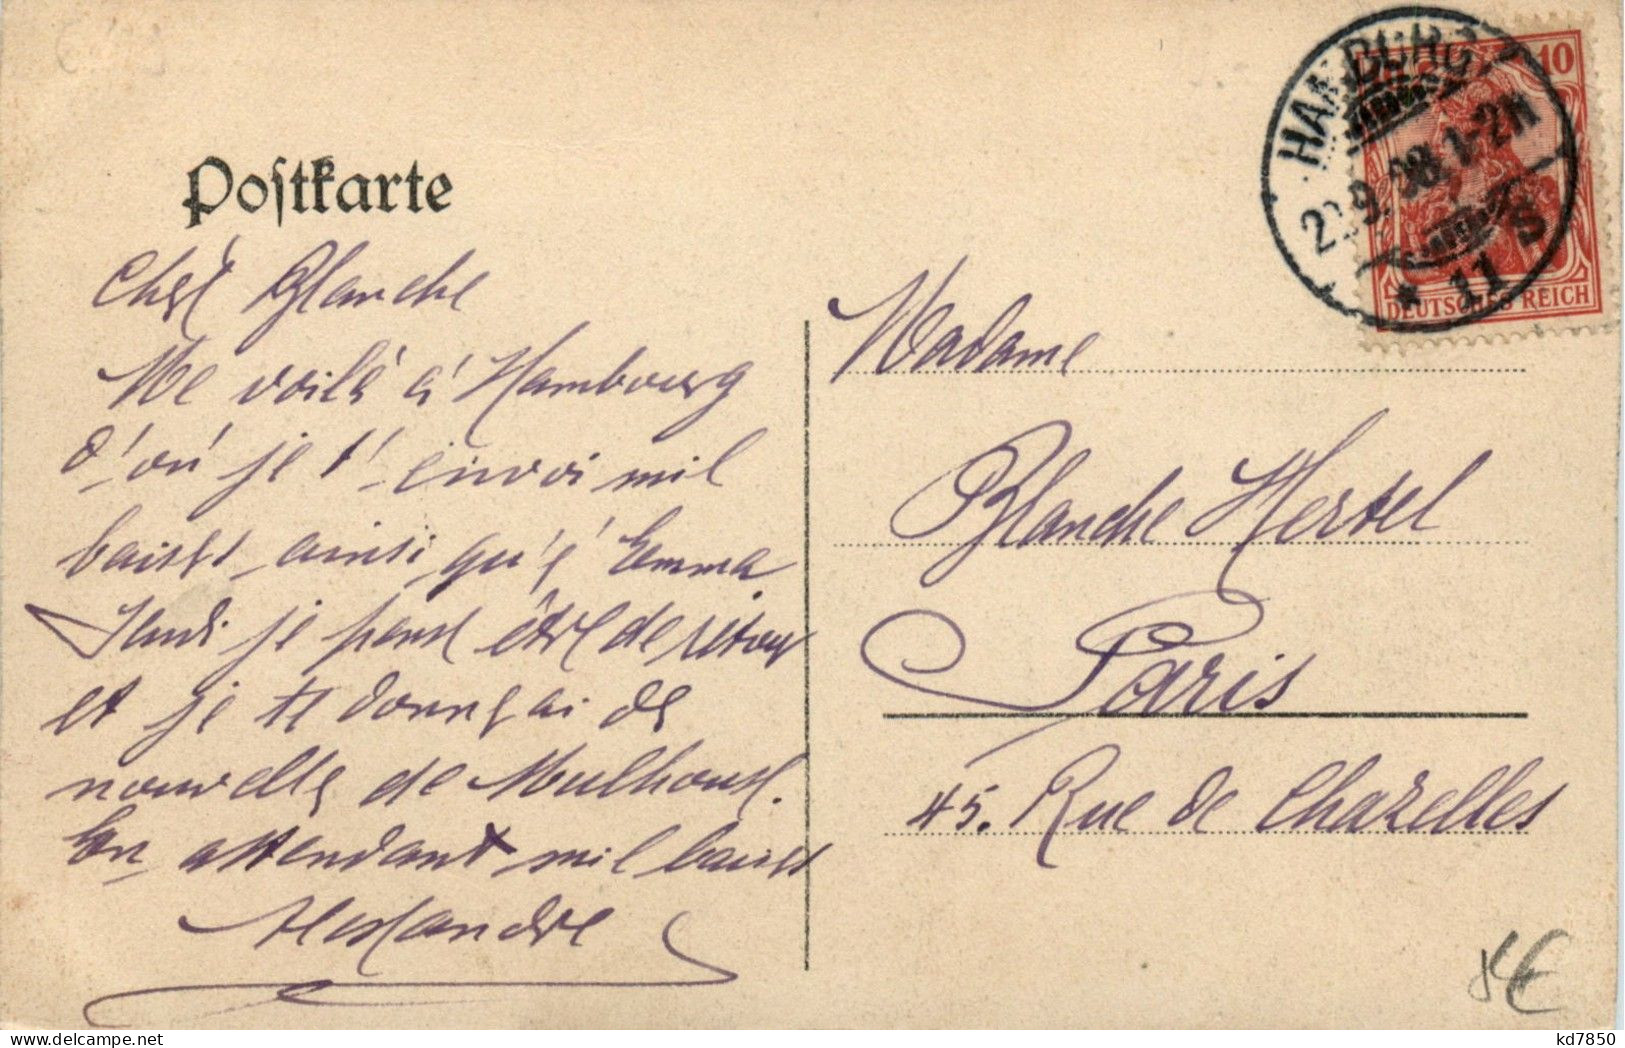 Postkarte
HAMBURG
.9.08. 1-2N
* 11
S
10
DEUTSCHES REICH
Cher Blanche
Me voilà à Hambourg
d'où je t'envoi mil
baiser ainsi qu'à Emma
Jeudi je pense être de retour
et je te donnerai de
nouvelle de Mulhouse.
En attendant mil baiser
Alexandre
Madame
Blanche Hertel
Paris
45. Rue de Chazelles
€
kd7850